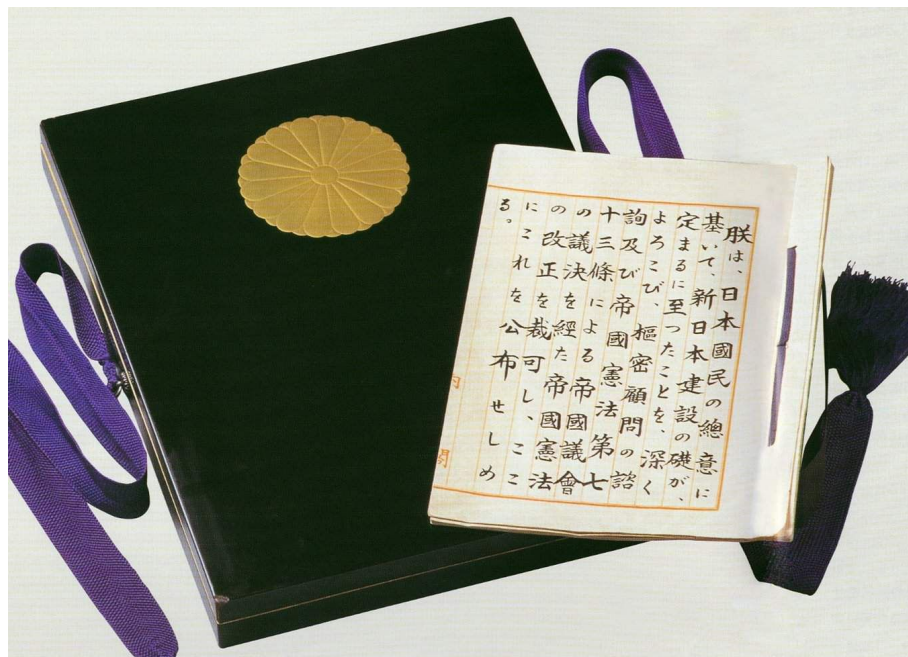 朕は、日本國民の總意に
基いて、新日本建設の礎が、
定まるに至つたことを、深く
よろこび、樞密顧問の諮
詢及び帝國憲法第七
十三條による帝國議會
の議決を經た帝國憲法
の改正を裁可し、ここ
にこれを公布せしめ
る。